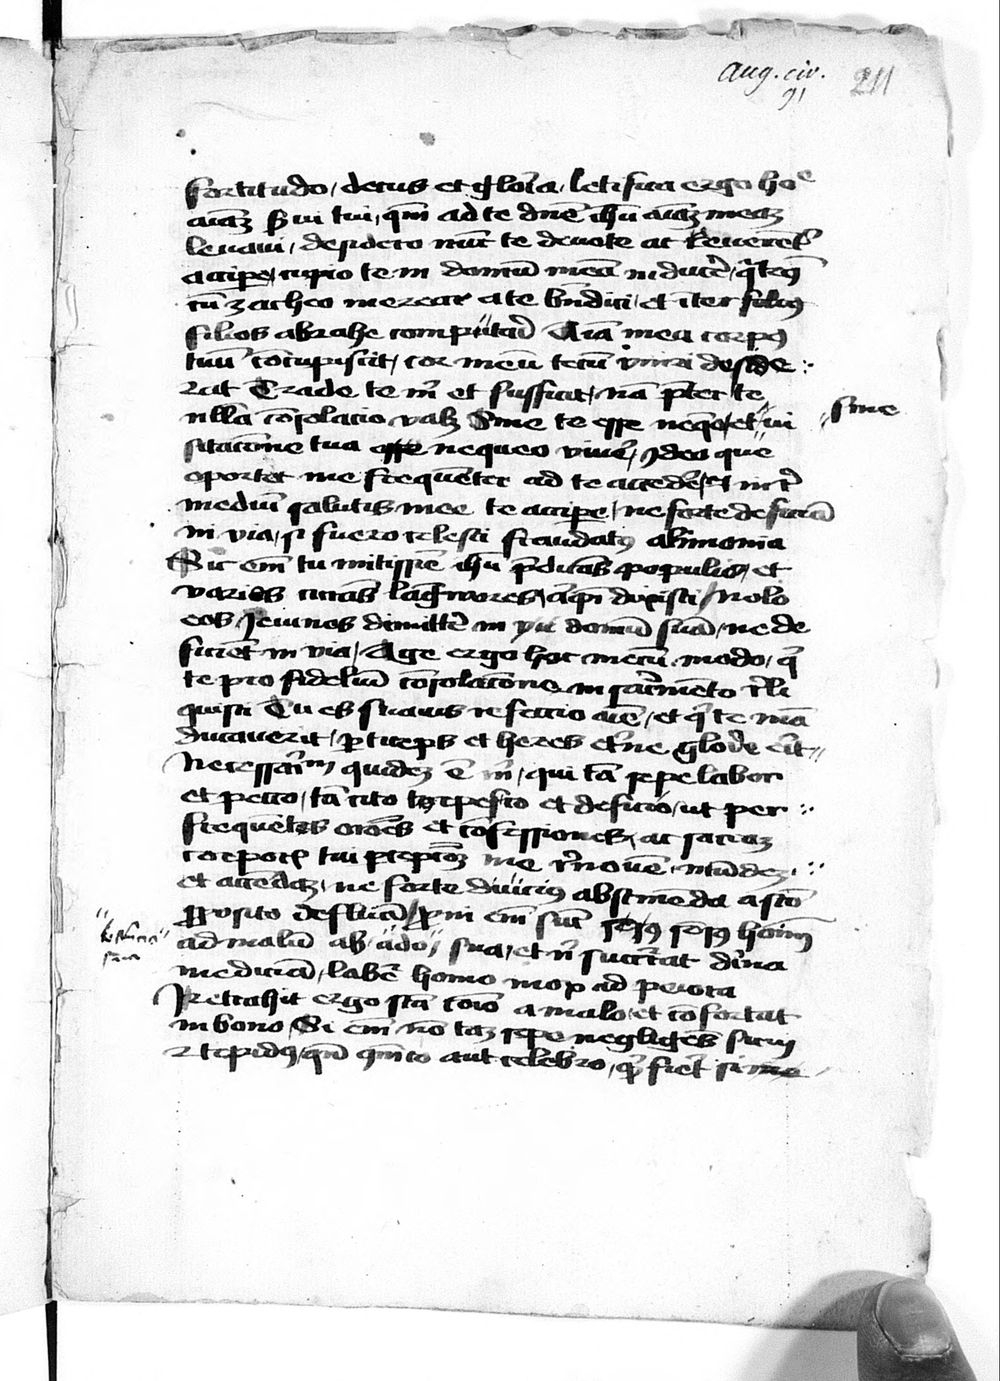 Aug. civ.
91
211
fortitudo / decus et gloria / letifica ergo hoe
aiaz sui tui / qm ad te dne ihu aiaz meaz
levavi / desidero nuc te devote ac reverent
accipe / cupio te in domu mea inducere / qtus
cu zacheo merear a te bndici / et iter filios
filios abrahe computari Aia mea corpus
tuu concupiscit / cor meu tecu uniri deside
rat Trade te m et sufficit / na pter te
nlla consolacio valz Sine te esse nequeo / et vi
sine
sitacone tua esse nequeo vivere / ideo que
oportet me frequenter ad te accedere / et in r
mediu salutis mee te accipe / ne forte deficia
in via / si fuero celesti fraudatus alimonia
Sic em tu mitissie ihu pdicas populis / et
varios curas lagwores / aliqn dixisti / Nolo
eos Jeiunos dimitte in domu sua / ne de
ficiet in via / Age ergo hoc mecu modo / q
te pro fideliu cosolacone in sacrameto reli
quisti Tu es suavis refeccio aie / et q te ma
ducaverit / pticeps et heres etne glorie erit
Necessariu quidez e m / qui ta sepe labor
et pecco / ta cito torpesco et deficio / ut per
frequetes oroes et cofessiones / ac sacraz
corporis tui pcepcoz me renove / mudez
et accedaz / ne forte diucius abstineda a sco
pposito deflua / Pni em sut sesus hois
ad malu ab ado sua / et n succrrat divina
medicia / labe homo mox ad peiora
Retrahit ergo sca coio a malo et cofortat
in bono Si em no taz sepe negliges sum
et tepidus / qn coico aut celebro / q fiet si